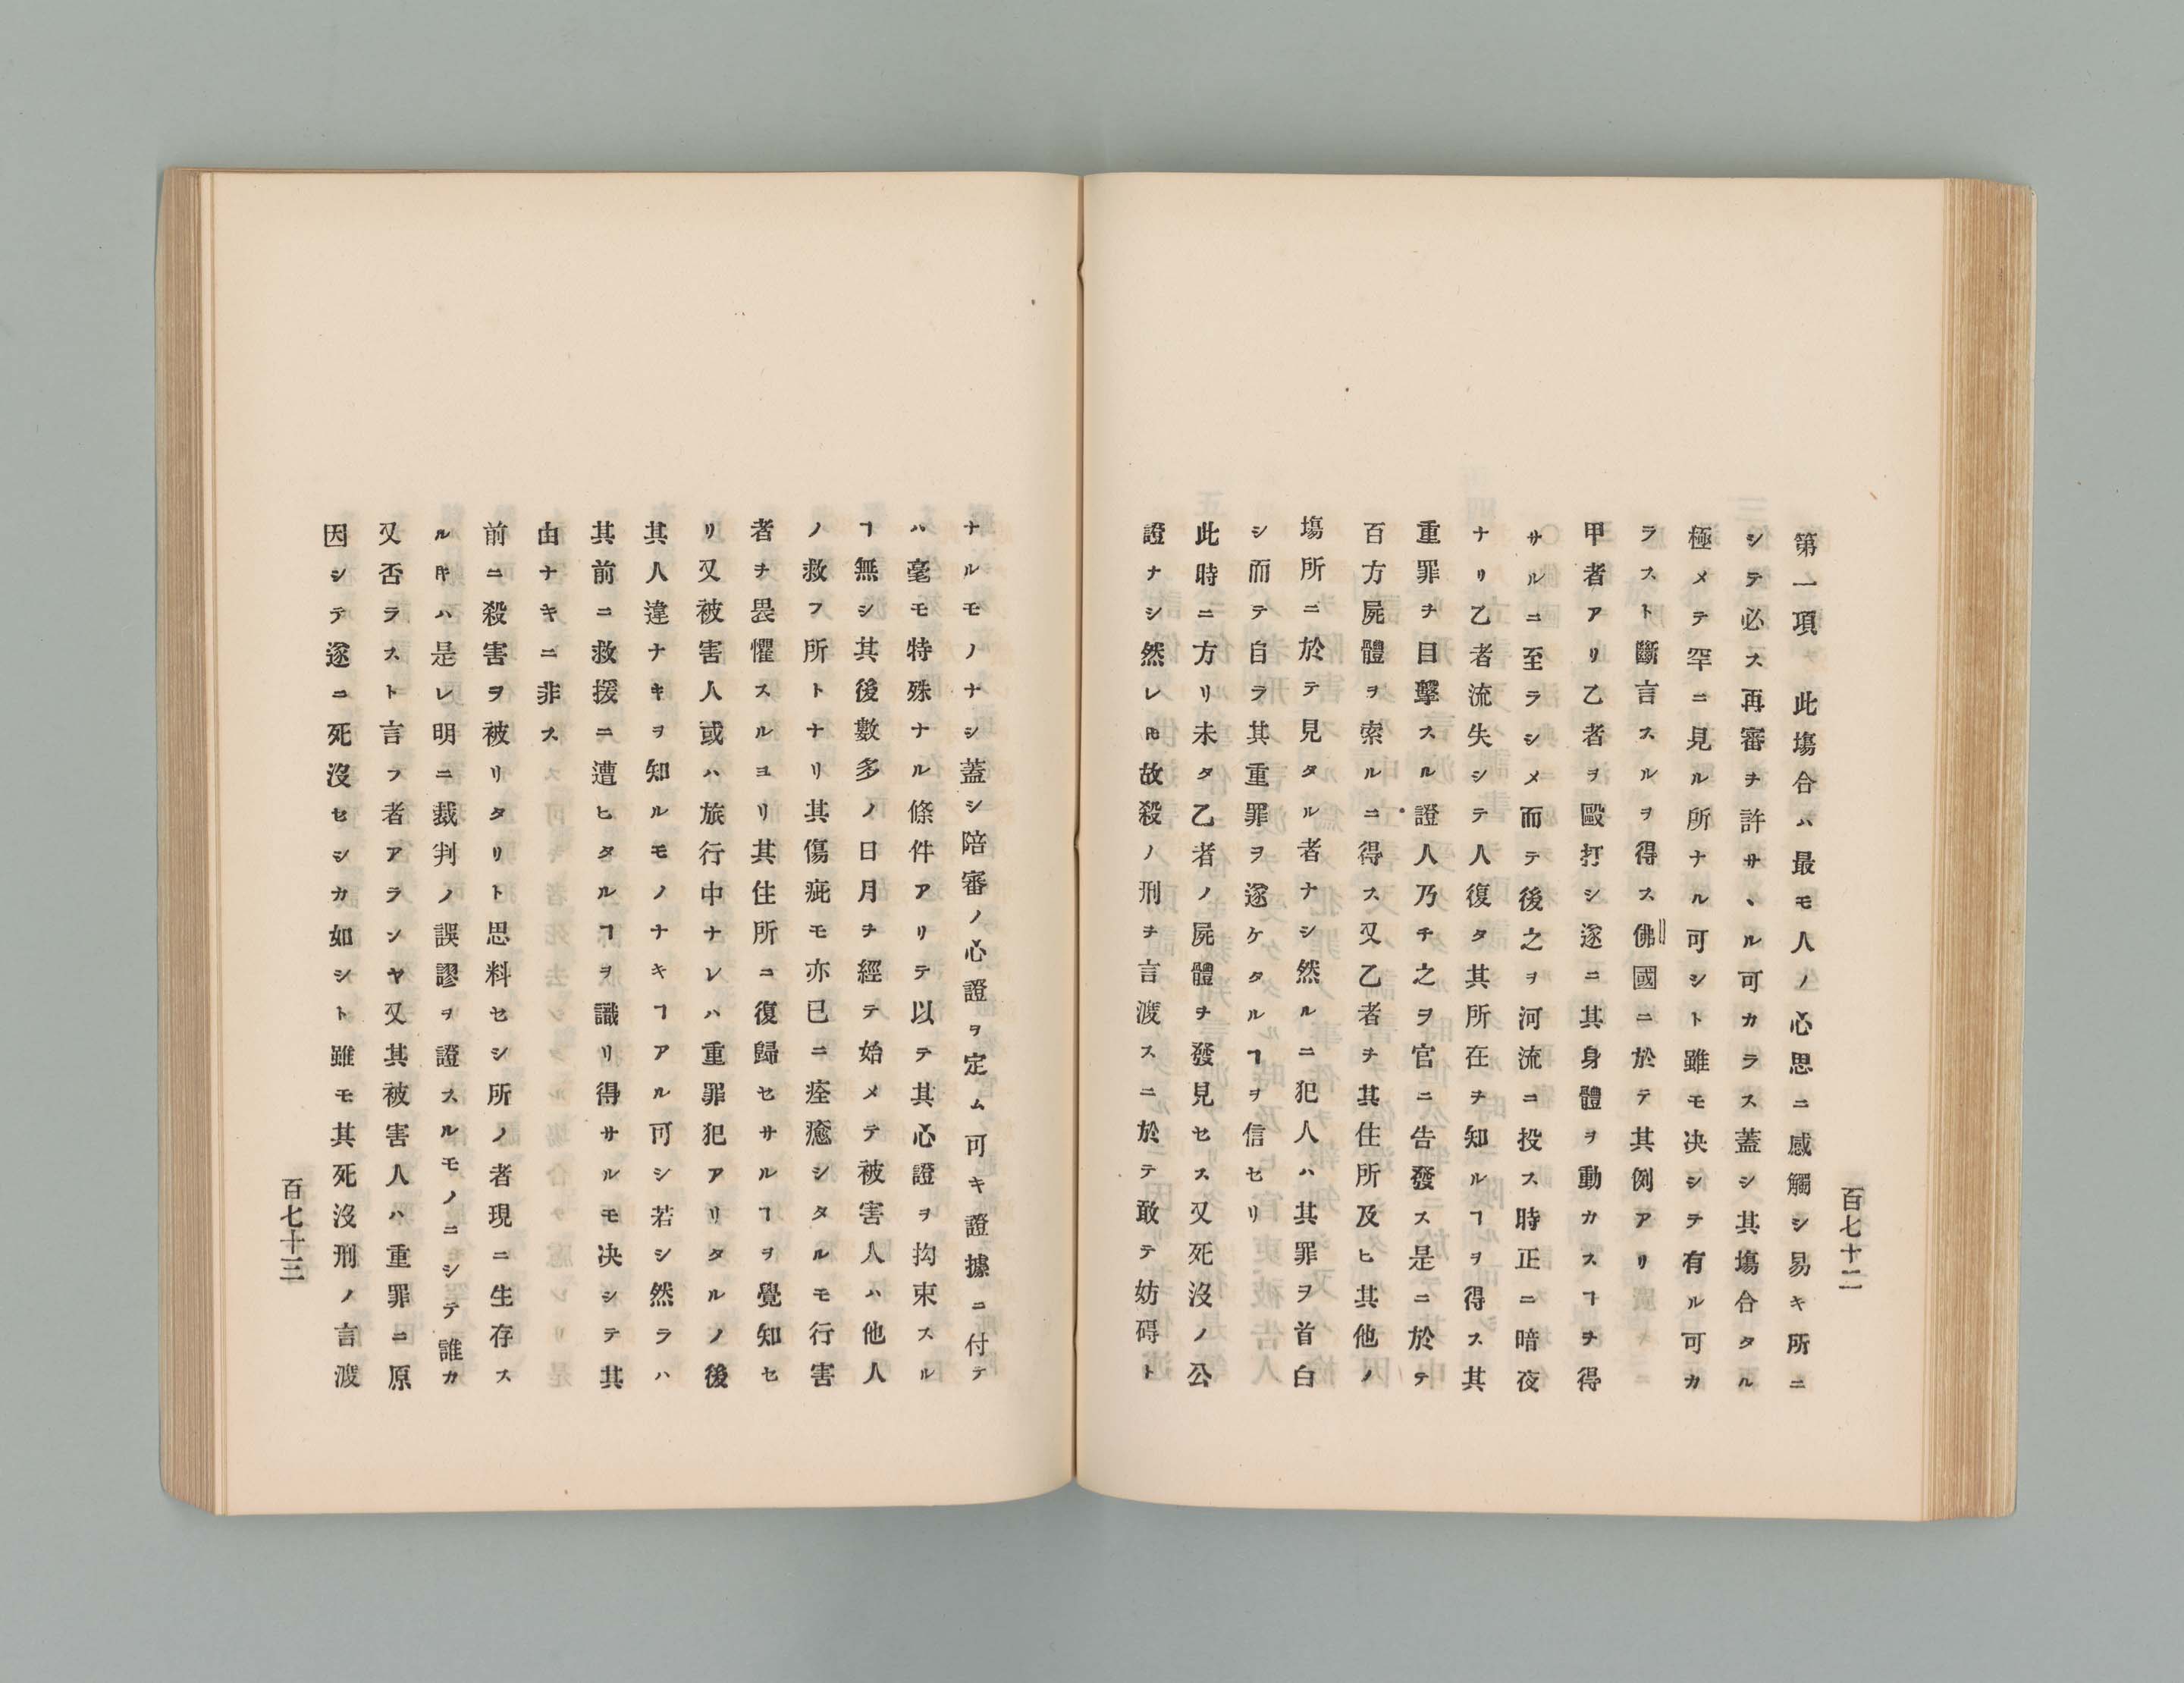 百七十二
第一項　此塲合ハ最モ人ノ心思ニ感觸シ易キ所ニ
シテ必ス再審ヲ許サヽル可カラス蓋シ其塲合タル
極メテ罕ニ見ル所ナル可シト雖モ决シテ有ル可カ
ラスト斷言スルヲ得ス佛國ニ於テ其例アリ
甲者アリ乙者ヲ毆打シ遂ニ其身體ヲ動カスヿヲ得
サルニ至ラシメ而テ後之ヲ河流ニ投ス時正ニ暗夜
ナリ乙者流失シテ人復タ其所在ヲ知ルヿヲ得ス其
重罪ヲ目擊スル證人乃チ之ヲ官ニ告發ス是ニ於テ
百方屍體ヲ索ルニ得ス又乙者ヲ其住所及ヒ其他ノ
塲所ニ於テ見タル者ナシ然ルニ犯人ハ其罪ヲ首白
シ而テ自ラ其重罪ヲ遂ケタルヿヲ信セリ
此時ニ方リ未タ乙者ノ屍體ヲ發見セス又死沒ノ公
證ナシ然レ𪜈故殺ノ刑ヲ言渡スニ於テ敢テ妨碍ト
ナルモノナシ蓋シ陪審ノ心證ヲ定ム可キ證據ニ付テ
ハ毫モ特殊ナル條件アリテ以テ其心證ヲ拘束スル
ヿ無シ其後數多ノ日月ヲ經テ始メテ被害人ハ他人
ノ救フ所トナリ其傷疵モ亦已ニ痊癒シタルモ行害
者ヲ畏懼スルヨリ其住所ニ復歸セサルヿヲ覺知セ
リ又被害人或ハ旅行中ナレハ重罪犯アリタルノ後
其人違ナキヲ知ルモノナキヿアル可シ若シ然ラハ
其前ニ救援ニ遭ヒタルヿヲ識リ得サルモ决シテ其
由ナキニ非ス
前ニ殺害ヲ被リタリト思料セシ所ノ者現ニ生存ス
ルキハ是レ明ニ裁判ノ誤謬ヲ證スルモノニシテ誰カ
又否ラスト言フ者アランヤ又其被害人ハ重罪ニ原
因シテ遂ニ死沒セシカ如シト雖モ其死沒刑ノ言渡
百七十三